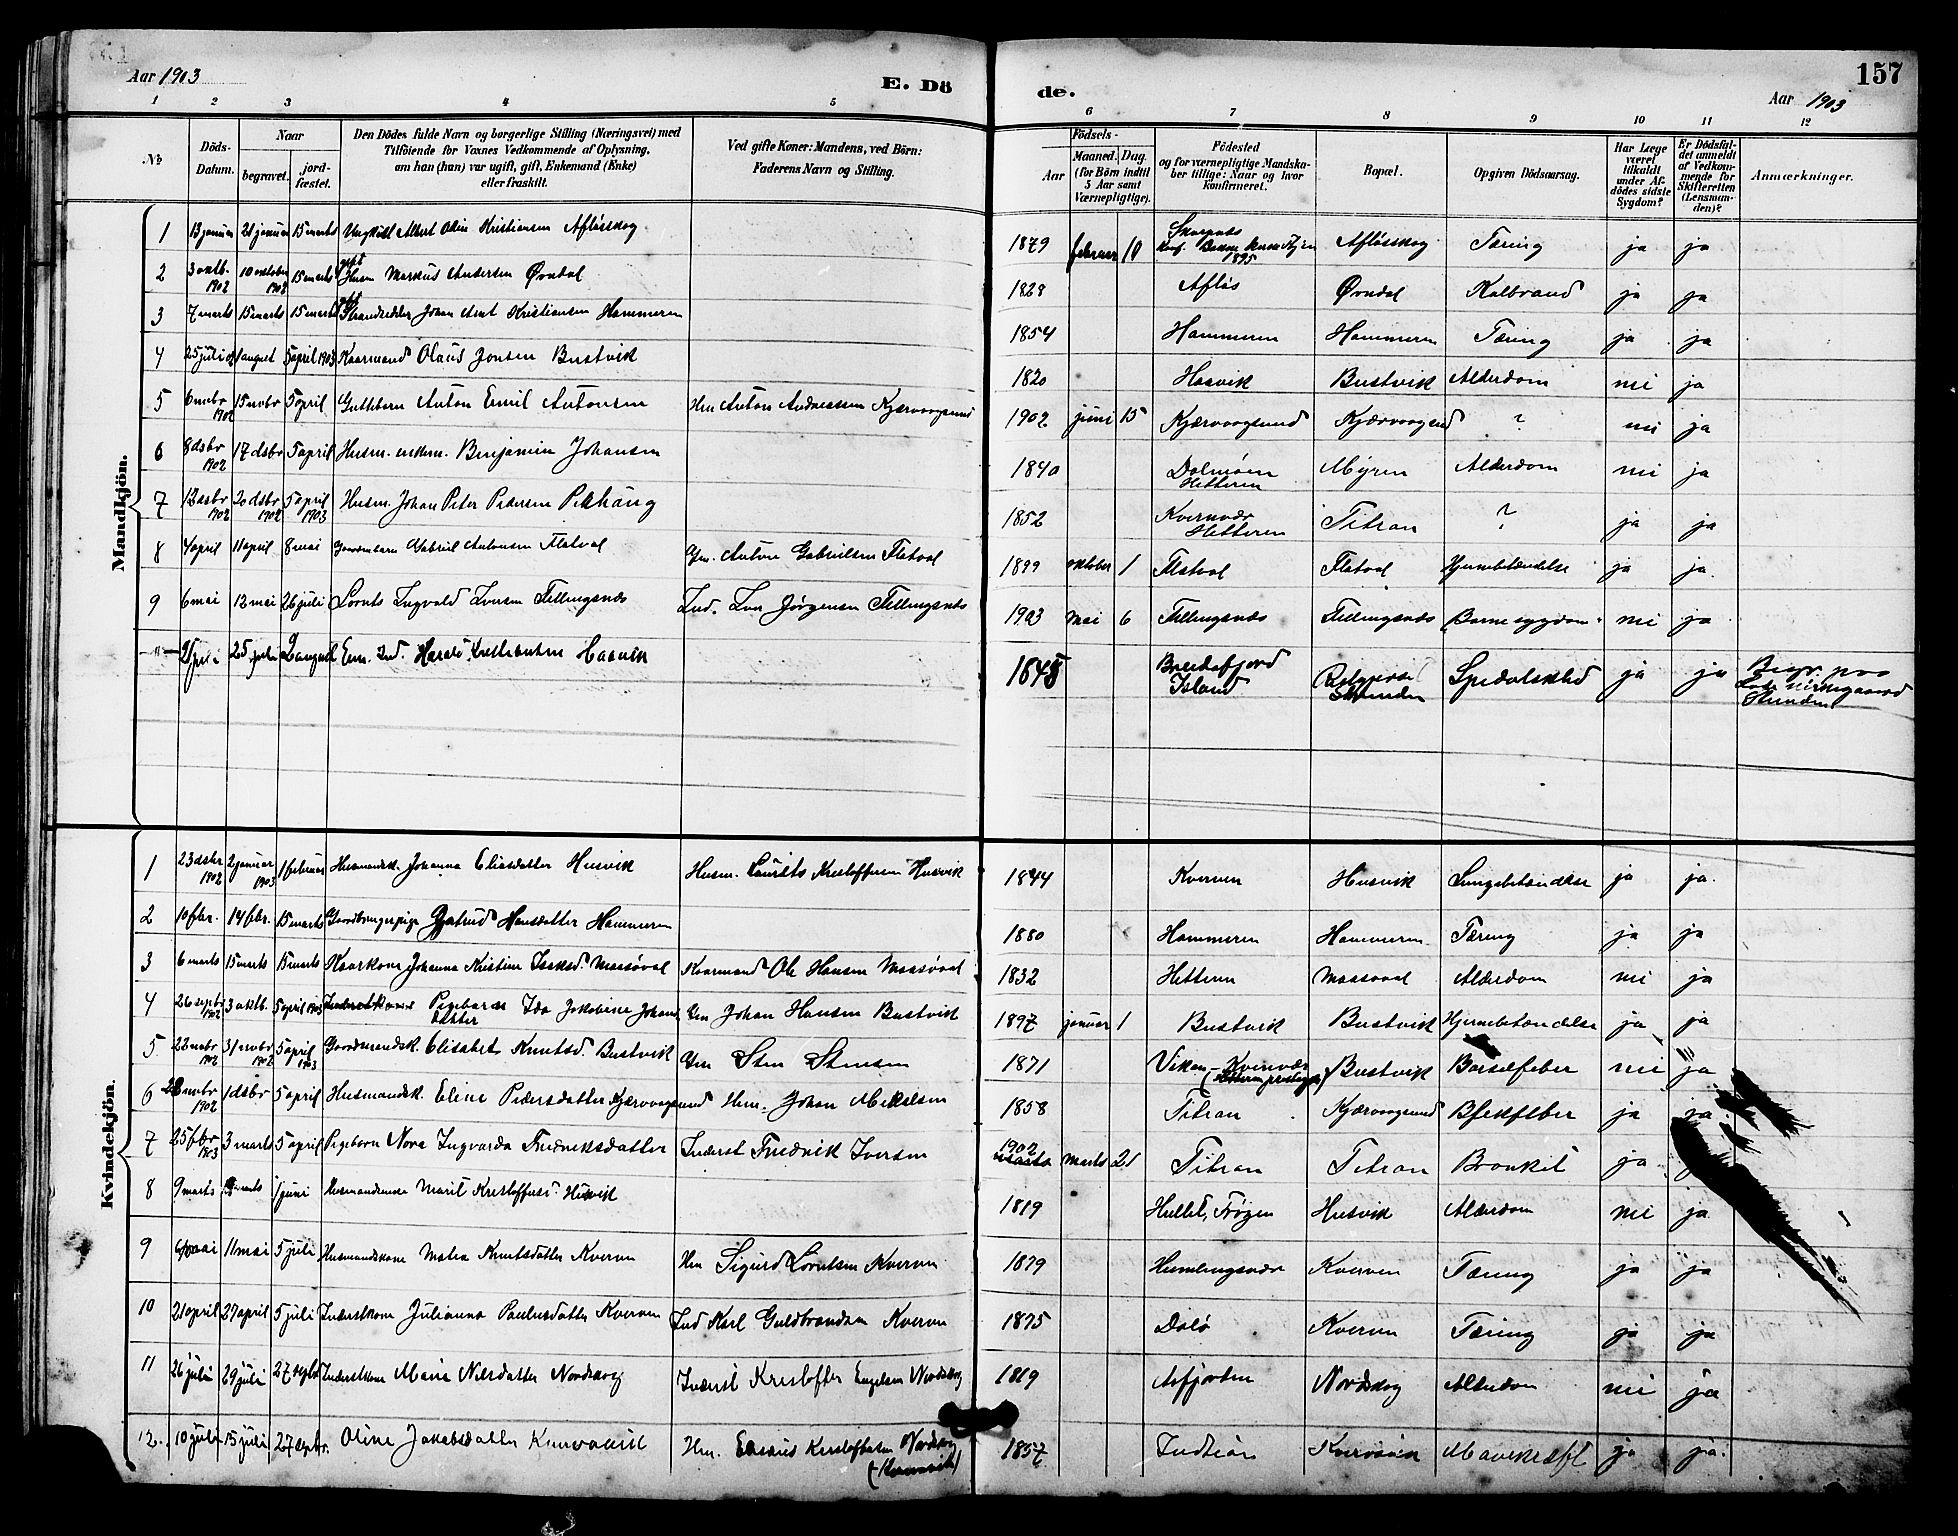 Aar 1903
E. Dö
de.
Aar 1903
157
1 2 3 4 5 6 7 8 9 10 11 12
No
Döds-Datum.
Naar
begravet.
jord-fæstet.
Den Dödes fulde Navn og borgerlige Stilling (Næringsvei) med
Tilföiende for Voxnes Vedkommende af Oplysning,
om han (hun) var ugift, gift, Enkemand (Enke)
eller fraskilt.
Ved gifte Koner: Mandens, ved Börn:
Faderens Navn og Stilling.
Födsels-
Aar
Maaned. Dag.
(for Börn indtil
5 Aar samt
Værnepligtige).
Födested
og for værnepligtige Mandska-
ber tillige: Naar og hvor
konfirmeret.
Bopæl.
Opgiven Dödsaarsag.
Har Læge
været
tilkaldt
under Af-
dödes sidste
Sygdom?
Er Dödsfal-
det anmeldt
af Vedkom-
mende for
Skifteretten
(Lensman-
den)?
Anmærkninger.
Mandkjön.
1 13 januar 21 januar 15 marts Ungkarl Albert Odin Kristiansen Afløsskog 1879 februar 10 Afløsskog Tæring ja ja
2 3 oktb. 1902 10 oktober 1902 15 marts gift Husm Markus Andersen Ørndal 1828 Afløs Ørndal Kolbrand ja ja
3 7 marts 15 marts 15 marts gift Strandsidder Johan Arnt Kristiansen Hammeren 1854 Hammeren Hammeren Tæring ja ja
4 25 juli 02 1 august 5 april 1903 Kaarmand Olaus Jonsen Bustvik 1820 Haavik Bustvik Alderdom nei ja
5 6 nvbr 1902 15 nvbr 5 april Guttebarn Anton Emil Antonsen Hm Anton Andreassen Kjærvaagsund 1902 juni 15 Kjærvaagsund Kjærvaagsund ? nei ja
6 8 dsbr 1902 17 dsbr 5 april Husm. enkem. Benjamin Johansen 1840 Dolmøen Hitteren Myren Alderdom nei ja
7 12 dsbr 1902 20 dsbr 1902 5 april 1903 Husm. Johan Peter Pedersen 1852 Kvernvær Hitteren Titran ? ja ja
8 4 april 11 april 8 mai Gabriel Antonsen Flatval Gm. Anton Gabrielsen Flatval 1899 oktober 1 Flatval Flatval Hjernebetændelse ja ja.
9 6 mai 12 mai 26 juli Lornts Ingvald Iversen Fillingsnæs Ind. Iver Jørgensen Fillingsnæs 1903 mai 6 Fillingsnæs Fillingsnæs Barnesygdom nei ja
25 juli 2 august Enm. Ind. Kristiansen Haavik 1845 Bredefjord Island Spedalskhed ja ja Begr. paa
Kvindekjön.
1 23 dsbr 1902 2 januar 1903 1 februar Husmandsk. Johanna Eliasdatter Husvik Husm. Laurits Kristoffersen Husvik 1844 Kverven Husvik Lungebetændelse ja ja.
2 10 fbr. 14 fbr. 15 marts Gaardbrugerpige Gjertrud Hansdatter Hammeren 1880 Hammeren Hammeren Tæring ja ja
3 6 marts 15 marts 15 marts Kaarkone Johanna Kristine Isaksd. Maasøval Kaarmand Ole Hansen Maasøval 1832 Hitteren Maasøval Alderdom nei ja
4 26 septbr 1902 3 oktb. 5 april 1903 Pigebarn Ida Jakobine Johans datter Gm Johan Hansen Bustvik 1897 januar 1 Bustvik Bustvik Hjernebetændelse ja ja
5 22 nvbr 1902 31 nvbr 1902 5 april 1903 Gaardmandsk. Elisabet Knutsd. Bustvik Gm Sten Stensen 1871 Vikan – Kvernvær Bustvik Barselfeber nei ja
6 22 nvbr 1902 1 dsbr 5 april Husmandsk. Eline Pedersdatter Kjærvaagsund Hm. Johan Mikalsen 1858 Titran Kjærvaagsund ja ja
7 25 fbr 1903 3 marts 5 april Pigebarn Nora Ingvarda Fredriksdatter Inderst Fredrik Iversen 1902 marts 21 Titran Titran Bronkit ja
8 9 marts 1 juni Marit Kristoffersd. Husvik 1819 Frøyen Husvik Alderdom nei ja
9 6 mai 11 mai 5 juli Husmandskone Matea Knutsdatter Kverven Hm Sigurd Lorntsen Kverven 1879 Humlingsvær Kverven Tæring ja ja
10 21 april 27 april 5 juli Inderstkone Julianna Paulusdatter Kverven Ind Karl Guldbrandsen Kverven 1875 Dolø Kverven Tæring ja ja
11 26 juli 29 juli 27 sptbr Inderstkone Marie Nilsdatter Nordskog Inderst Kristoffer Engelsen Nordskog 1819 Aafjorden Nordskog Alderdom nei ja
12. 10 juli 15 juli 27 septbr. Oline Jakobsdatter Hm. Erasmus Kristoffersen Nordskog 1857 Mavekræft ja ja.